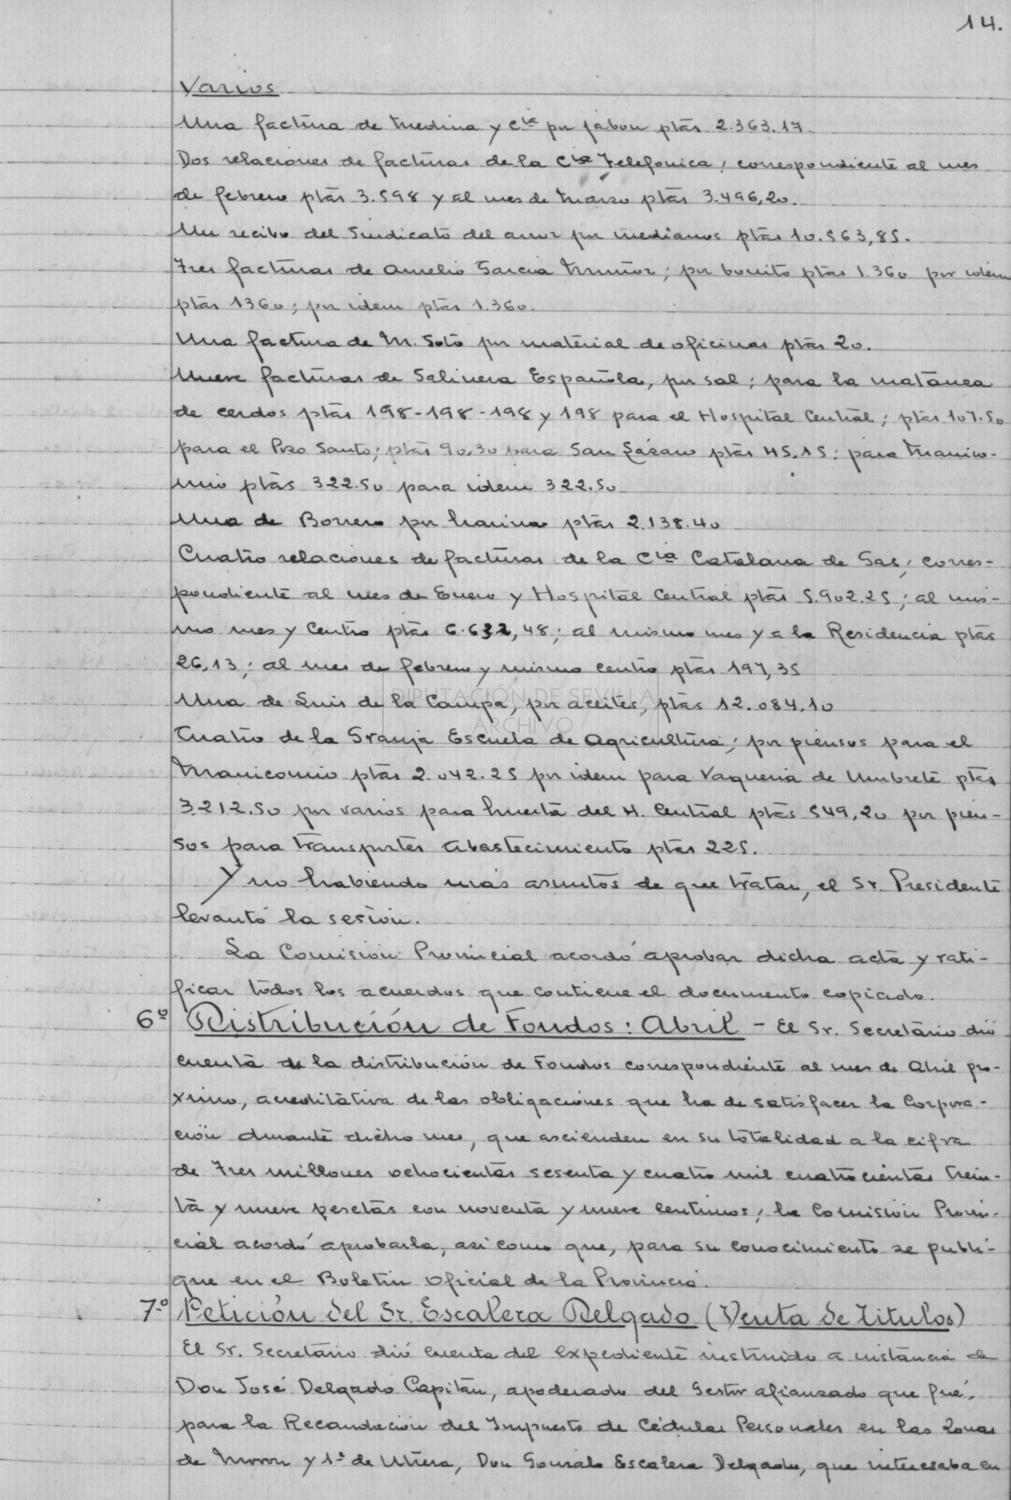 14.
Varios
Una factura de Medina y Cía por jabon ptas 2.363.17.
Dos relaciones de facturas de la Cía Telefonica, correspondiente al mes
de febrero ptas 3.598 y al mes de Marzo ptas 3.496,20.
Un recibo del Sindicato del arroz por medianos ptas 10.563,85.
Tres facturas de Amelio Garcia Muñoz; por bonito ptas 1.360 por idem
ptas 1360; por idem ptas 1.360.
Una factura de M. Soto por material de oficinas ptas 20.
Nueve facturas de Salinera Española, por sal; para la matanza
de cerdos ptas 198-198-198 y 198 para el Hospital Central; ptas 107.50
para el Pozo Santo; ptas 90,30 para San Lázaro ptas 45,15: para Manico-
mio ptas 322.50 para idem 322.50
Una de Borrero por harina ptas 2.138.40
Cuatro relaciones de facturas de la Cía Catalana de Gas; corres-
pondiente al mes de Enero y Hospital Central ptas 5.902.25; al mis-
mo mes y Centro ptas 6.632,48; al mismo mes y a la Residencia ptas
26,13; al mes de febrero y mismo centro ptas 197,35
DIPUTACIÓN DE SEVILLA
ARCHIVO
Una de Luis de la Campa, por aceites, ptas 12.084,10
Cuatro de la Granja Escuela de Agricultura; por piensos para el
Manicomio ptas 2.042.25 por idem para Vaqueria de Umbrete ptas
3.212.50 por varios para huerta del H. Central ptas 549,20 por pien-
sos para transportes abastecimiento ptas 225.
Y no habiendo más asuntos de que tratar, el Sr. Presidente
levantó la sesion.
La Comision Provincial acordó aprobar dicha acta y rati-
ficar todos los acuerdos que contiene el documento copiado.
6º Distribución de Fondos: Abril - El Sr. Secretario dió
cuenta de la distribución de Fondos correspondiente al mes de Abril pro-
ximo, acreditativa de las obligaciones que ha de satisfacer la Corpora-
ción durante dicho mes, que ascienden en su totalidad a la cifra
de Tres millones ochocientas sesenta y cuatro mil cuatrocientas trein-
ta y nueve pesetas con noventa y nueve centimos; la Comision Provin-
cial acordó aprobarla, asi como que, para su conocimiento se publi-
que en el Boletin Oficial de la Provincia.
7º Petición del Sr. Escalera Delgado (Venta de Titulos)
El Sr. Secretario dió cuenta del expediente instruido a instancia de
Don José Delgado Capitán, apoderado del Gestor afianzado que fué,
para la Recaudacion del Impuesto de Cédulas Personales en las Zonas
de Moron y 1ª de Utrera, Don Gonzalo Escalera Delgado, que interesaba en